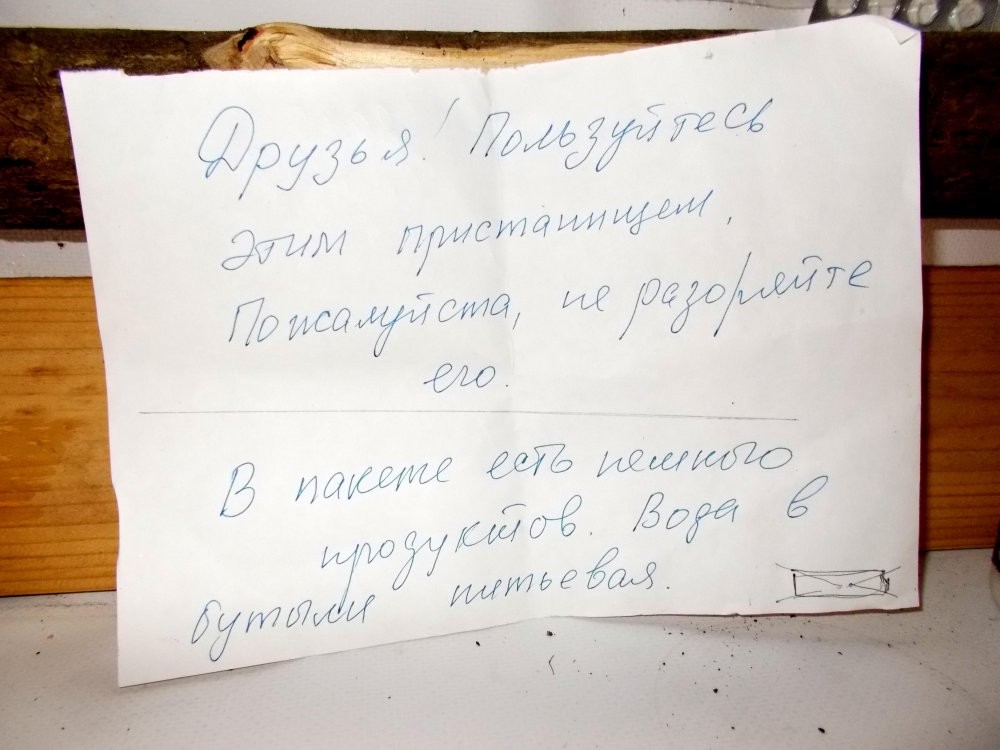 Друзья! Пользуйтесь
этим пристанищем.
Пожалуйста, не разоряйте
его.
В пакете есть немного
продуктов. Вода в
бутыли питьевая.